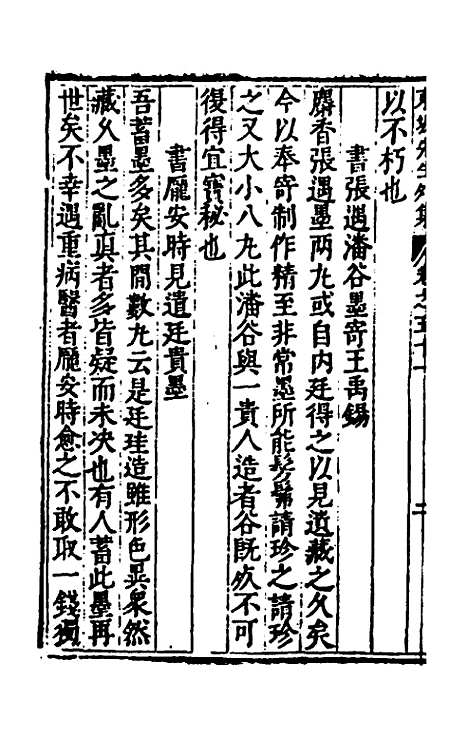 以不朽也
書張遇潘谷墨寄王禹錫
麝香張遇墨兩丸或自内廷得之以見遺藏之久矣
今以奉寄制作精至非常墨所能髣髴請珍之請珍
之又大小八丸此潘谷與一貴人造者谷既歿不可
復得宜寶秘也
書龎安時見遺廷貴墨
吾蓄墨多矣其間數丸云是廷珪造雖形色異衆然
藏久墨之亂眞者多皆疑而未决也有人蓄此墨再
世矣不幸遇重病醫者龎安時愈之不敢取一錢獨